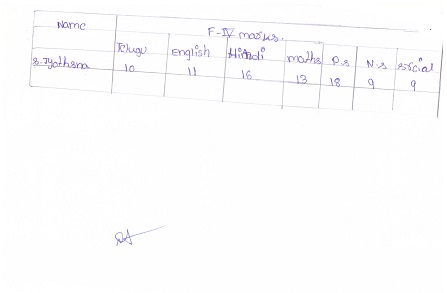 Name F-IV marks.
Telugu English Hindi maths P.s N.s social
S. Jyothsna 10 11 16 13 18 9 9